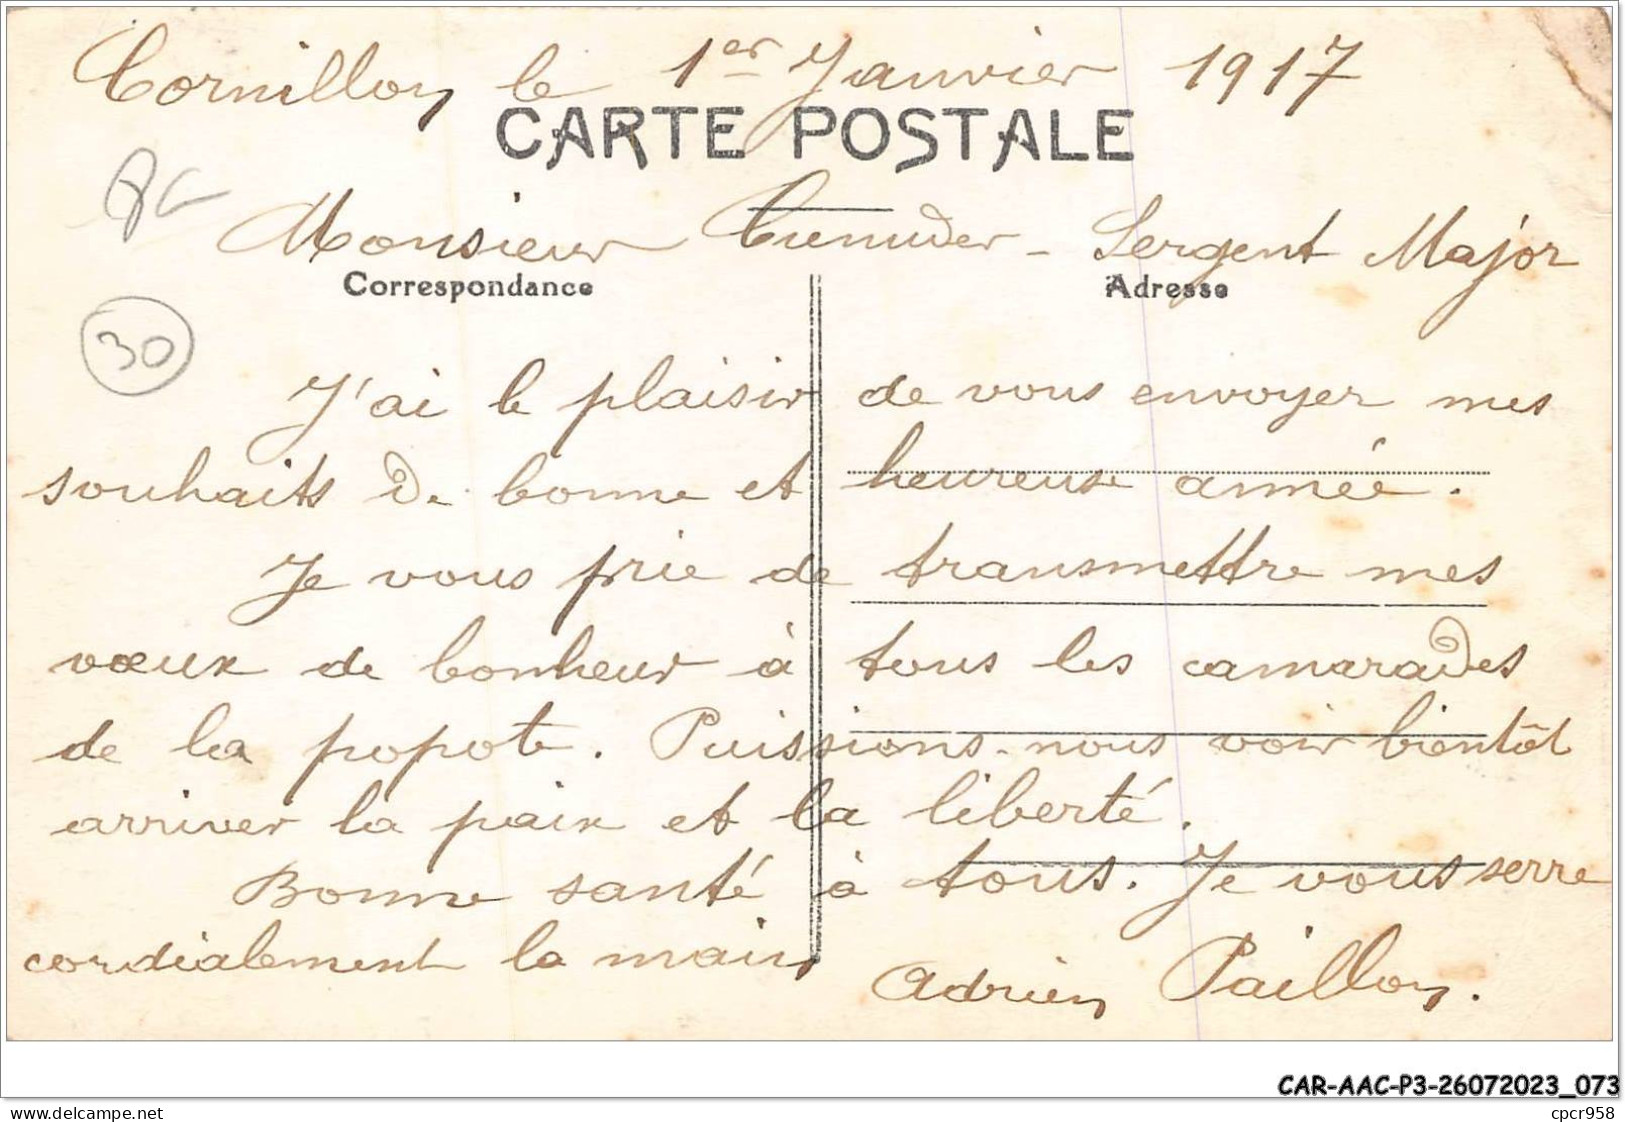 Cornillon le 1er Janvier 1917
CARTE POSTALE
Monsieur - Sergent Major
Correspondance Adresse
30
J'ai le plaisir de vous envoyer mes
souhaits de bonne et heureuse année.
Je vous prie de transmettre mes
vœux de bonheur à tous les camarades
de la popote. Puissions-nous voir bientôt
arriver la paix et la liberté.
Bonne santé à tous. Je vous serre
cordialement la main
Adrien Paillon.
CAR-AAC-P3-26072023_073
www.delcampe.net
cpcr958